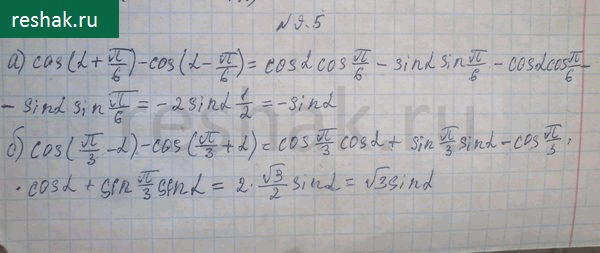 reshak.ru
№9.5
а) cos(α + π/6) - cos(α - π/6) = cosα cos π/6 - sinα sin π/6 - cosα cos π/6 -
- sinα sin π/6 = -2 sinα 1/2 = -sinα
б) cos(π/3 - α) - cos(π/3 + α) = cos π/3 cosα + sin π/3 sinα - cos π/3 ·
· cosα + sin π/3 sinα = 2 · √3/2 sinα = √3 sinα
reshak.ru